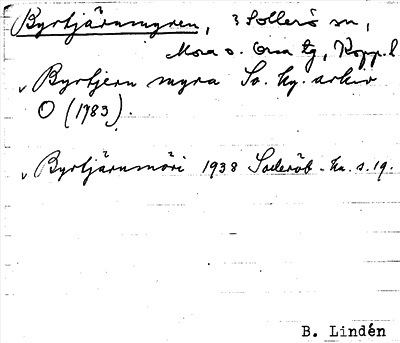 Byrtjärnmyren, ? Sollerö sn,
Mora o. Orsa tg, Kopp. l
v Byrtjern myra So. hg. arkiv
O (1783).
v Byrtjärnmöri 1938 Soderöb. hs. s. 19.
B. Lindén